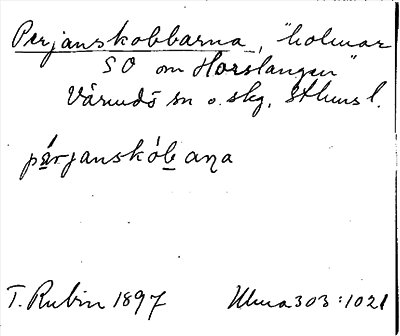 Perjanskobbarna, "holmar
SO om Horslangen"
Värmdö sn o. skg, Sthms l.
pä́rjanskób aṇa
T. Rubin 1897 Ulma 303:1021